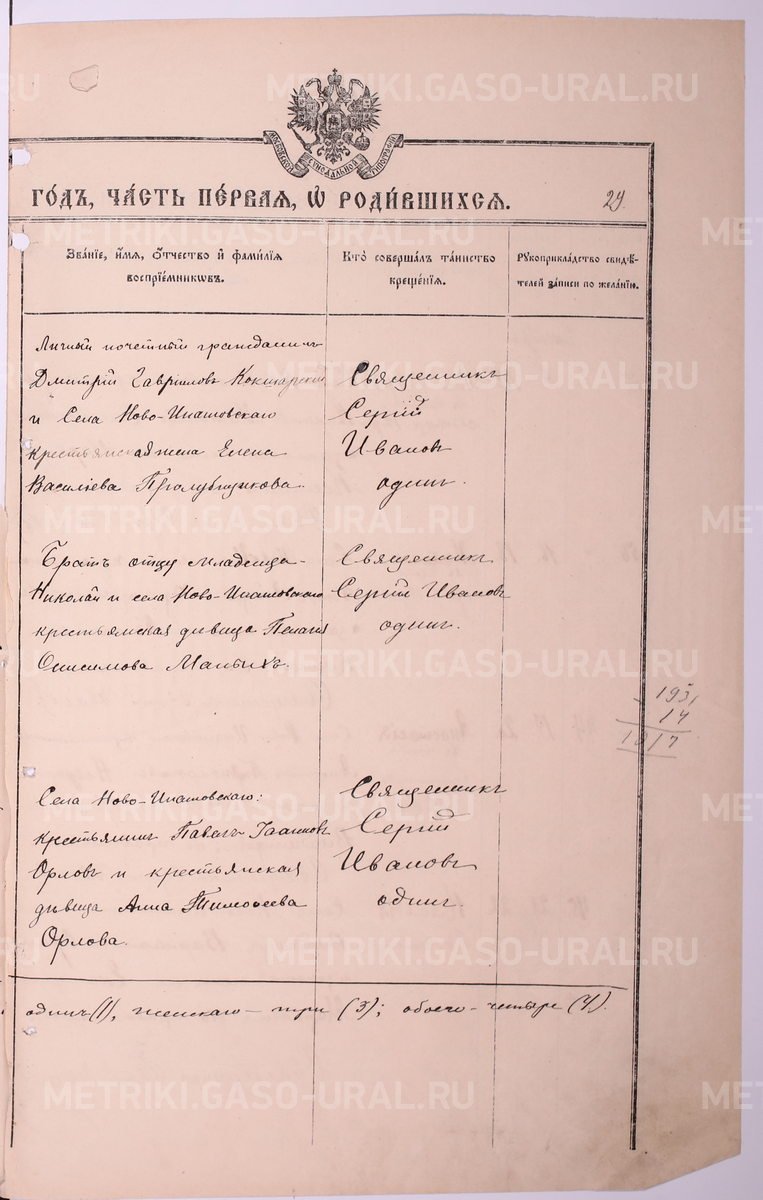 МОСКОВСКОЙ СѴНОДАЛЬНОЙ ТИПОГРАФІИ
ГО́ДЪ, ЧА́СТЬ ПЕ́РВАЯ, Ѡ҆ РОДИ́ВШИХСЯ. 29
Зва́ніе, и҆́мя, ѻ҆́тчество и҆ фами́лія воспріе́мниковъ.
Кто̀ соверша́лъ та́инство креще́нія.
Рукоприкла́дство свидѣ́телей за́писи по жела́нію.
Личный почетный гражданинъ
Дмитрій Гавриловъ Кокшарский
и Села Ново-Ипатовскаго
крестьянская жена Елена
Василіева Пролубщикова.
Священникъ
Сергій
Ивановъ
одинъ.
Братъ отцу младенца
Николай и села Ново-Ипатовскаго
крестьянская дѣвица Пелагія
Онисимова Малыхъ.
Священникъ
Сергій Ивановъ
одинъ.
195
14
1817
Села Ново-Ипатовскаго:
крестьянинъ Павелъ Іоанновъ
Орловъ и крестьянская
дѣвица Анна Тимоѳеева
Орлова.
Священникъ
Сергій
Ивановъ
одинъ.
одинъ (1), женскаго - три (3); обоего - четыре (4).
METRIKI.GASO-URAL.RU